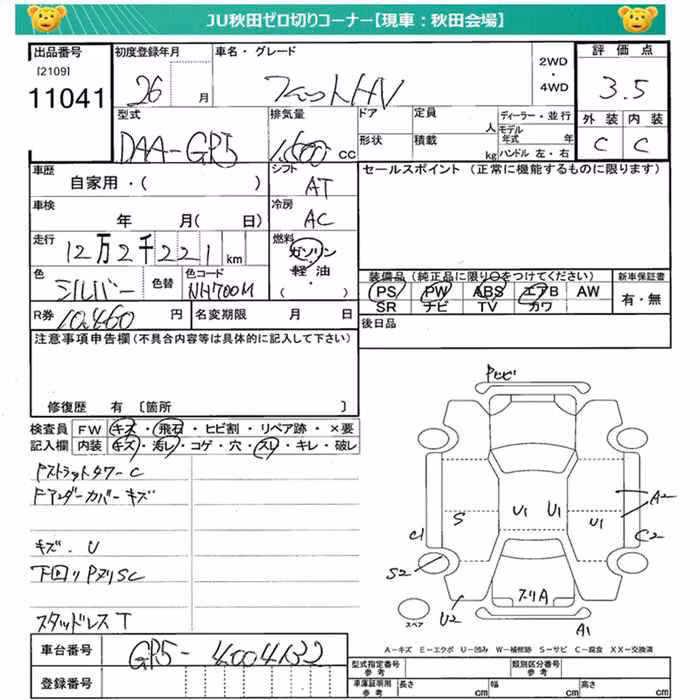 JU秋田ゼロ切りコーナー【現車：秋田会場】
出品番号 [2109] 11041
初度登録年月 26 月
車名・グレード フィットHV
2WD ・ 4WD
評価点 3.5
外装 C 内装 C
型式 DAA-GP5
排気量 1,500 cc
ドア 形状
定員 人 積載 kg
ディーラー・並行
モデル年式 年
ハンドル 左・右
車歴 自家用・( )
シフト AT
セールスポイント (正常に機能するものに限ります)
車検 年 月( 日)
冷房 AC
走行 12万2千221 km
燃料 ガソリン・軽油・( )
色 シルバー 色替
色コード NH700M
装備品 (純正品に限り○をつけてください)
PS PW ABS エアB AW
SR ナビ TV カワ
新車保証書 有・無
R券 10,460 円
名変期限 月 日
後日品
注意事項申告欄 (不具合内容等は具体的に記入して下さい)
修復歴 有 [箇所 ]
検査員記入欄
FW キズ・飛石・ヒビ割・リペア跡・×要
内装 キズ・汚レ・コゲ・穴・スレ・キレ・破レ
FストラットタワーC
Fアンダーカバーキズ
キズ．U
下回りPヌリSC
スタッドレスT
Pトビ
S U1 U1 U1 A2
C1 C2
S2
ヌリA
U2 A1
スペア
A－キズ E－エクボ U－凹み W－補修跡 S－サビ C－腐食 XX－交換済
車台番号 GP5-4004132
登録番号
型式指定番号 参考
類別区分番号 参考
車庫証明用 参考 長さ cm 幅 cm 高さ cm